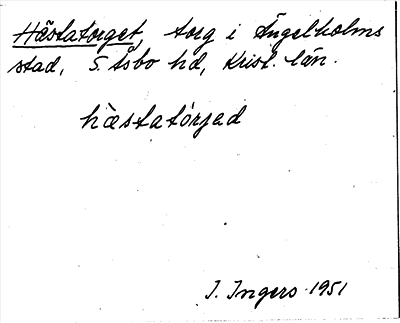 Hästatorget, torg i Ängelholms
stad, S. Åsbo hd, Krist. län.
hæ̀statórjad
I. Ingers 1951